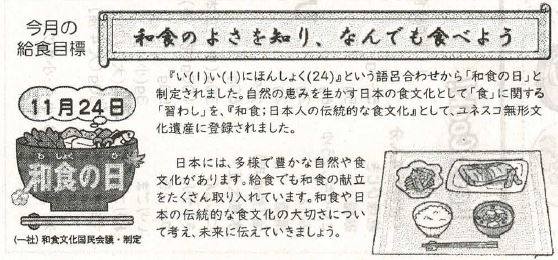 今月の
給食目標
和食のよさを知り、なんでも食べよう
『い(1)い(1)にほんしょく(24)』という語呂合わせから「和食の日」と
制定されました。自然の恵みを生かす日本の食文化として「食」に関する
「習わし」を、『和食;日本人の伝統的な食文化』として、ユネスコ無形文
化遺産に登録されました。
11月24日
わ しょく ひ
和食の日
(一社)和食文化国民会議・制定
日本には、多様で豊かな自然や食
文化があります。給食でも和食の献立
をたくさん取り入れています。和食や日
本の伝統的な食文化の大切さについ
て考え、未来に伝えていきましょう。